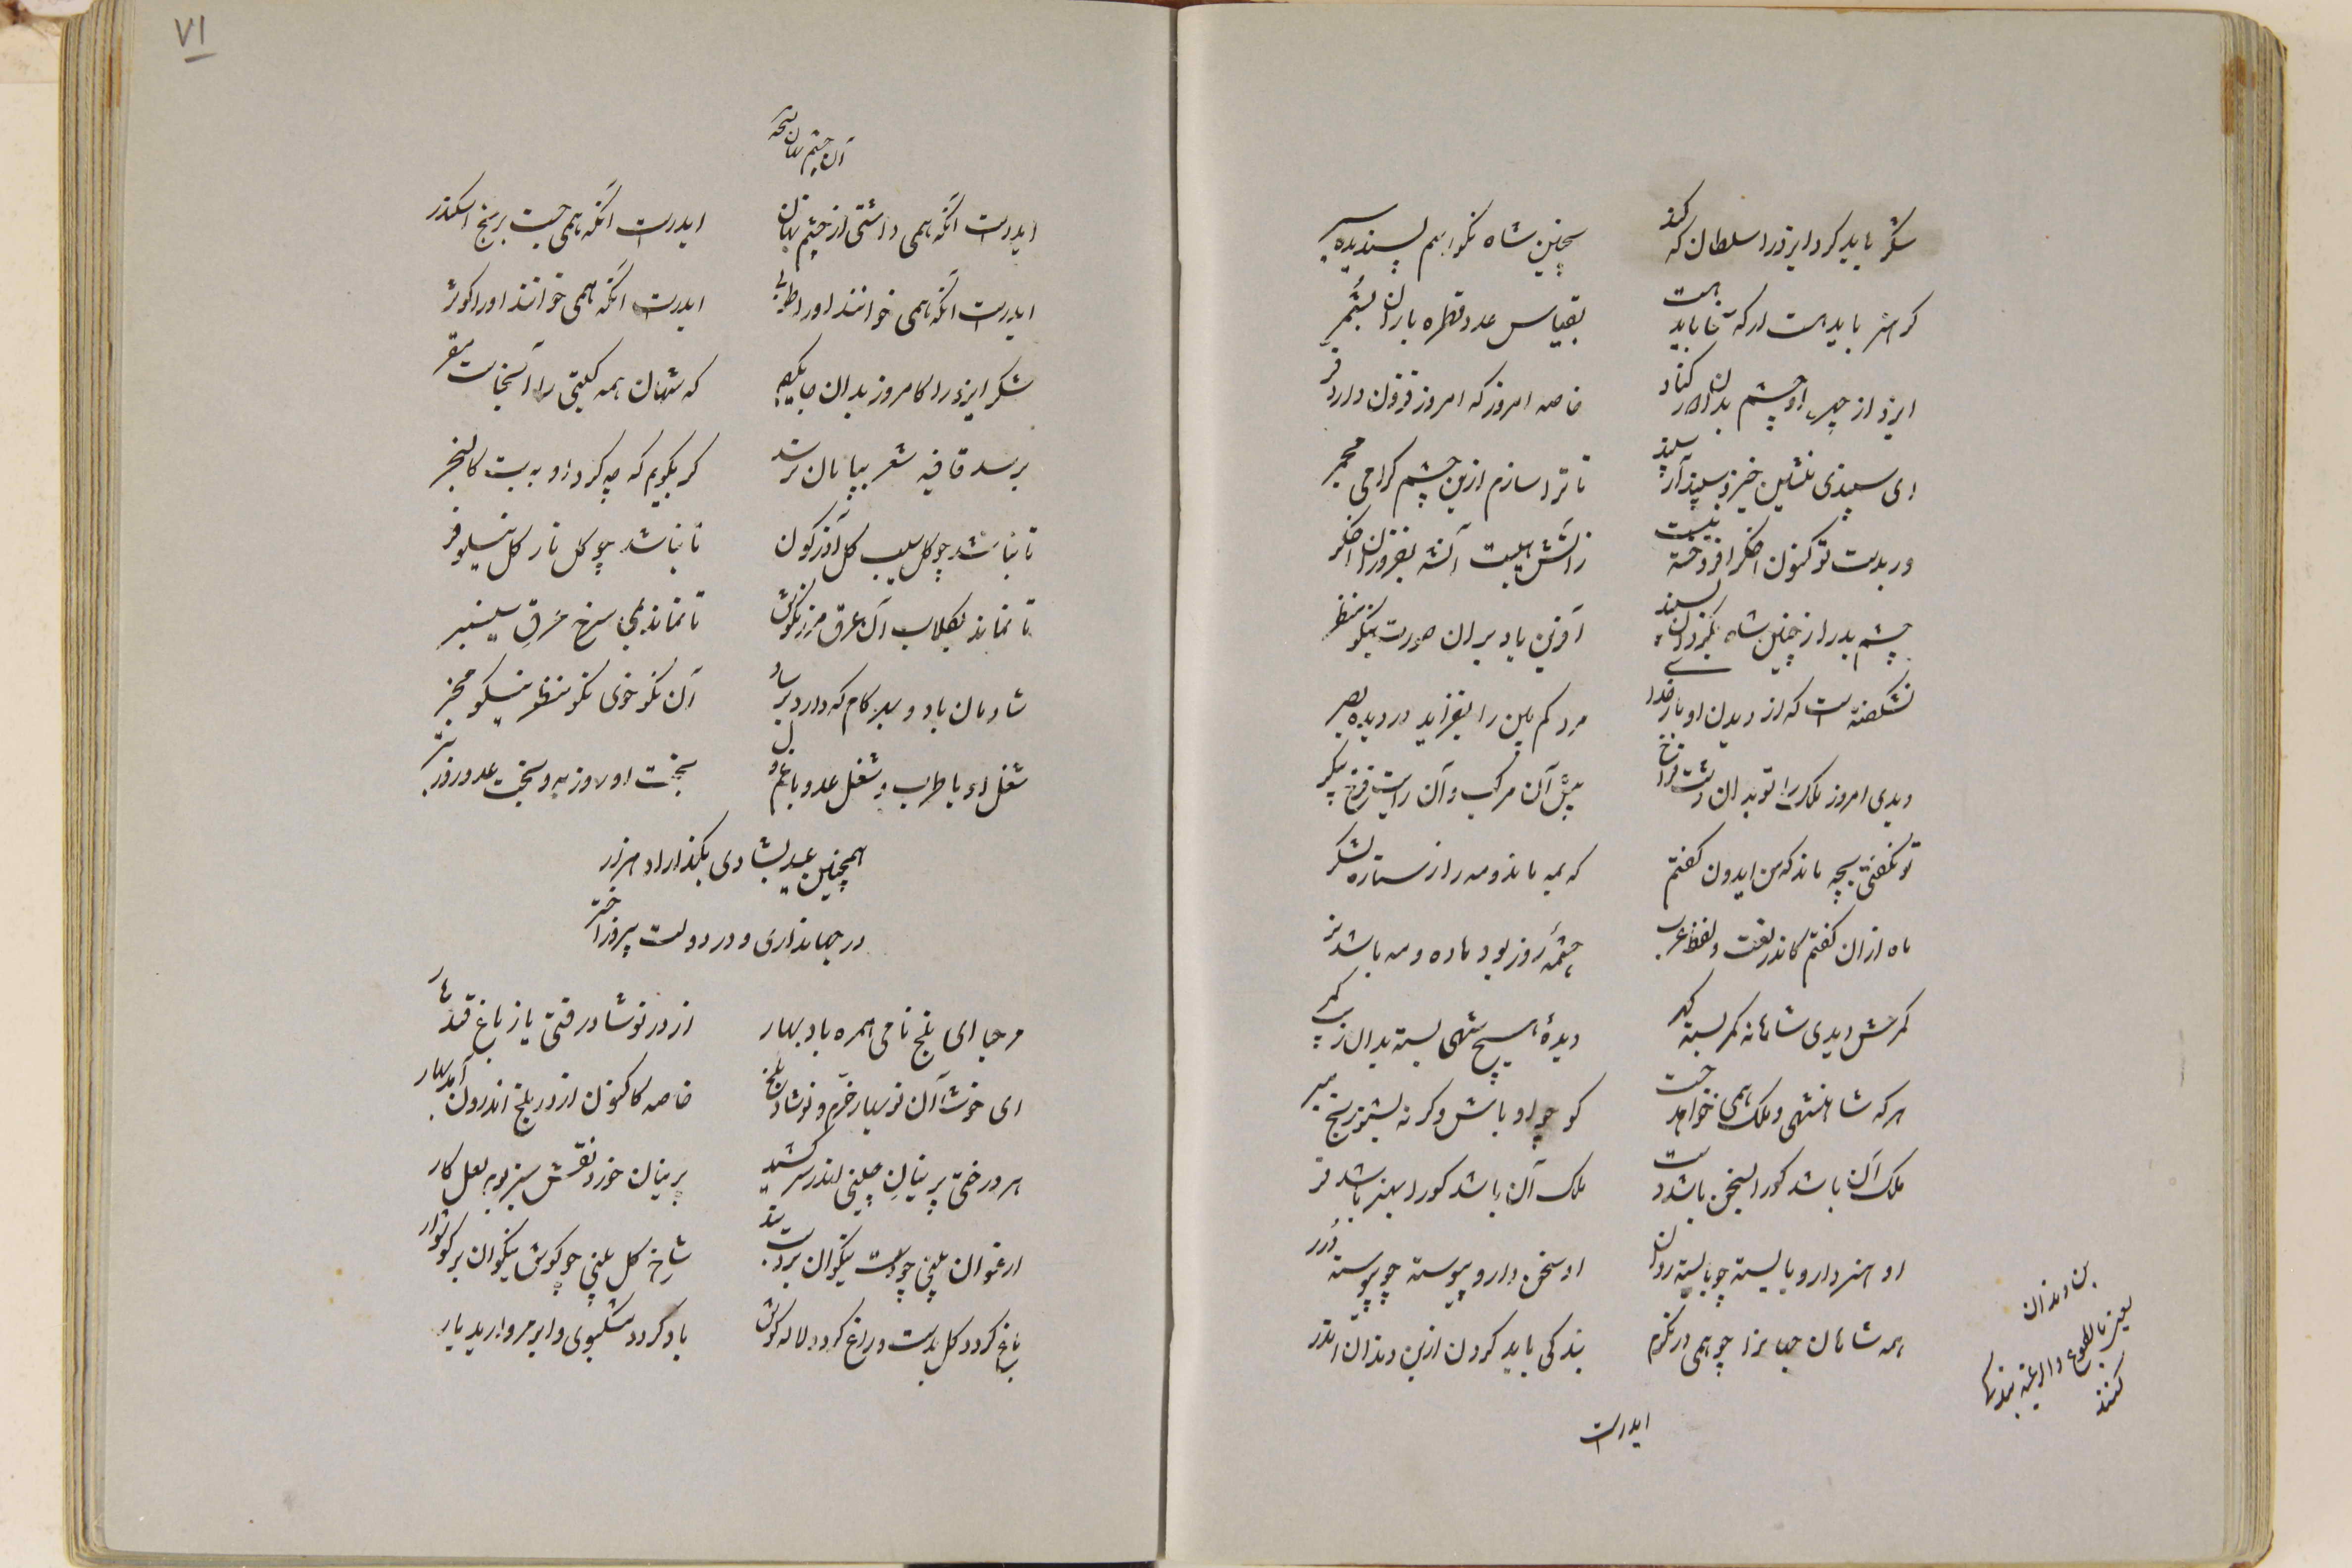 شکر باید کرد ایزد را سلطان که کند
بچنین شاه نکو رهم پسندیده سیر
کر هنر باید هست ار که تا باید هست
بقیاس عدد قطره باران بشمر
ایزد از چهر او چشم بدان دور کناد
خاصه امروز که امروز فزون دارد فر
ای سپندی منشین خیز و سپند آر سپند
تا ترا سازم ازین چشم کرامی مجمر
ور بدست تو کنون اخکر افروخته نیست
ز آتش هیبت آنشه بفروزان اخکر
چشم بد را ز چنین شاه بکردان بسپند
آفرین باد بران صورت نیکو منظر
نشکفته است که از دیدن او باز خدا
مرد کم بین را بفزاید در دیده بصر
دیدی امروز ملک را تو بدان دشت فراخ
پیش آن مرکب و آن رایت فرخ پیکر
تو نکفتی بچه ماند که من ایدون کفتم
که بمه ماند و مه را ز ستاره لشکر
ماه ازان کفتم کاندر لغت و لفظ عرب
چشمهٔ روز بود ماده و مه باشد نر
کمرش دیدی شاهانه کمر بسته کمر
دیدهٔ هیچ شهی بسته بدان زیب کمر
هر که شاهنشهی و ملک همی خواهد جست
کو چو او باش و کر نه بشو و رنج مبر
ملک آن باشد کورا بسخن باشد دست
ملک آن باشد کورا بهنر باشد فر
او هنر دارد بایسته چو بایسته روان
او سخن دارد پیوسته چو پیوسته درر
همه شاهان جهانرا چو همی درنکرم
بندکی باید کردن ازبن دندان ایدر
بن دندان
یعنی بالطوع والرغبه بندکی
کنند
ایدرست
۷۱
آن چشم نهان نسخه
ایدرست آنکه همی داشتی از چشم نهان
ایدرست آنکه همی جست برنج اسکندر
ایدرست آنکه همی خوانند اورا طوبی
ایدرست آنکه همی خوانند اورا کوثر
شکر ایزد را کامروز بدان جایکهم
که شهان همه کیتی را آنجاست مقر
برسد قافیه شعر بپایان نرسد
کر بکویم که چه کرد او به بت کالنجر
تا نباشد چو کل سیب کل آذرکون
تا نباشد چو کل نار کل نیلوفر
تا نماند بکلاب آن عرق مرزنکوش
تا نماند بمی سرخ عرق سیسنبر
شادمان باد و بهر کام که دارد برساد
آن نکو خوی نکو منظر نیکو مخبر
شغل او با طرب و شغل عدو با غم دل
بخت او روز به و بخت عدو روز بتر
همچنین عید بشادی بکذاراد هزار
در جهانداری و در دولت پیروز اختر
مرحبا ای بلخ نامی همره باد بهار
از در نوشاد رفتی یا ز باغ قندهار
ای خوشا آن نوبهار خرم و نوشاد بلخ
خاصه کاکنون از در بلخ اندرون آمد بهار
هر درختی پرنیان چینی اندر سر کشید
پرنیان خرد نقش سبز بوم لعل کار
ارغوان بینی چو دست نیکوان پر دستبند
شاخ کل بینی چو کوش نیکوان پر کوشوار
باغ کردد کل پرست و راغ کردد لاله کوش
باد کردد مشکبوی و ابر مروارید بار